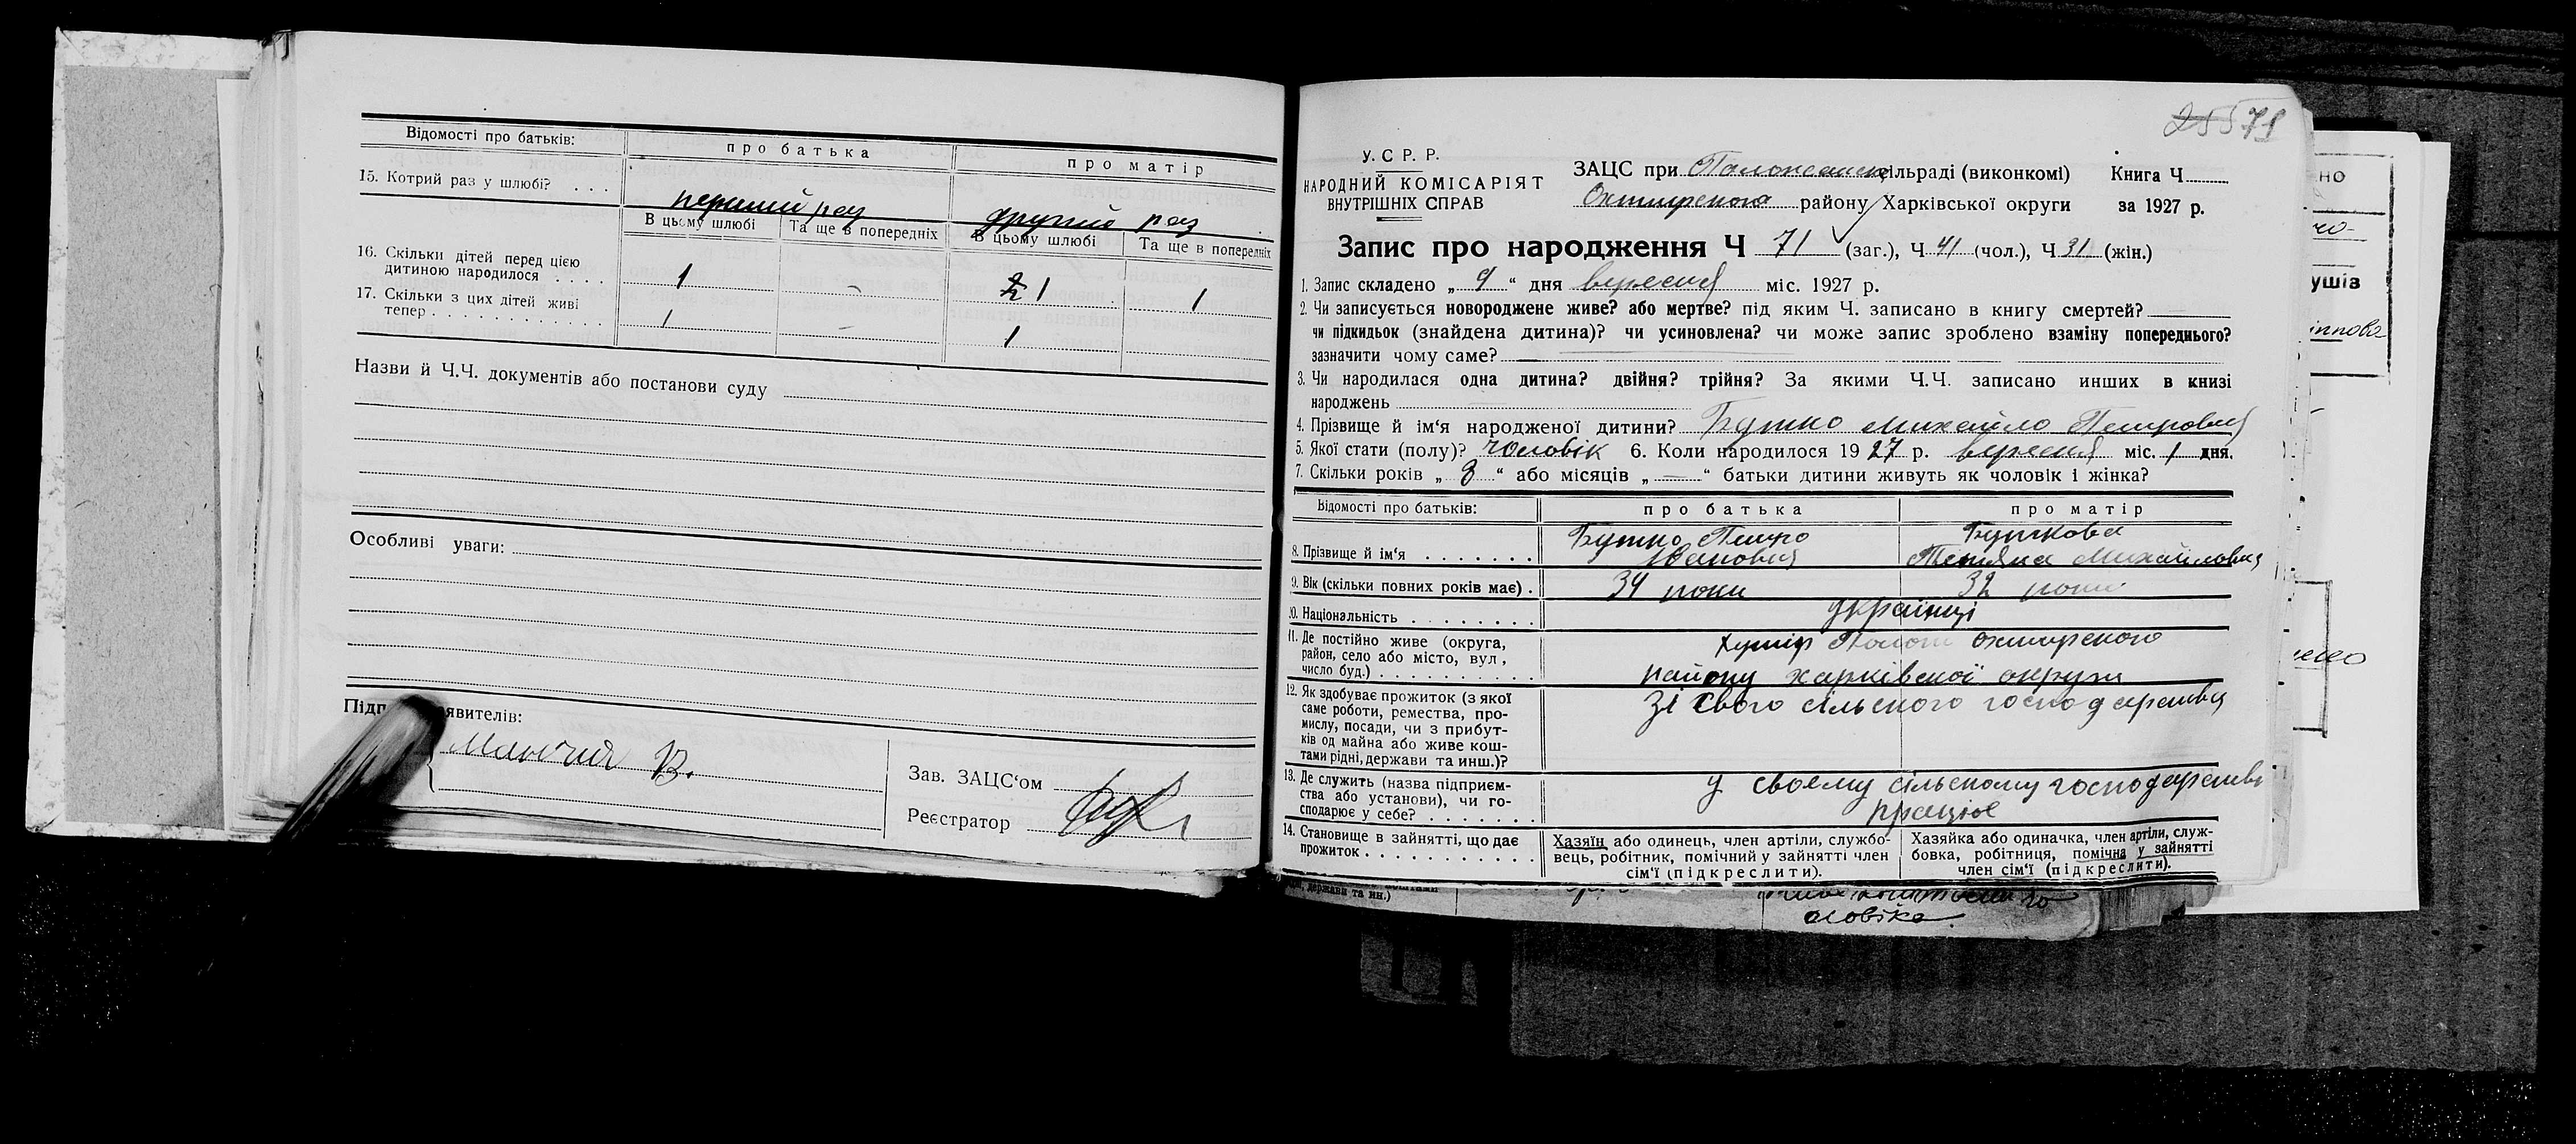 Відомості про батьків: про батька про матір
15. Котрий раз у шлюбі? . . . перший раз другий раз
В цьому шлюбі Та ще в попередніх В цьому шлюбі Та ще в попередніх
16. Скільки дітей перед цією
дитиною народилося . . . . 1 – 1 1
17. Скільки з цих дітей живі
тепер . . . . . . . . . . . . 1 – 1
Назви й Ч.Ч. документів або постанови суду
Особливі уваги:
явителів:
В.
Зав. ЗАЦС‘ом
Реєстратор
71
У.С.Р.Р.
НАРОДНИЙ КОМІСАРІЯТ
ВНУТРІШНІХ СПРАВ
ЗАЦС при сільраді (виконкомі) Книга Ч
Охтирського району Харківської округи за 1927 р.
Запис про народження Ч 71 (заг.), Ч 41 (чол.), Ч 31 (жін.)
1. Запис складено „ 9 “ дня вересня міс. 1927 р.
2. Чи записується новороджене живе? або мертве? під яким Ч. записано в книгу смертей?
чи підкидьок (знайдена дитина)? чи усиновлена? чи може запис зроблено взаміну попереднього?
зазначити чому саме?
3. Чи народилася одна дитина? двійня? трійня? За якими Ч.Ч. записано инших в книзі
народжень
4. Прізвище й ім‘я народженої дитини? Бутко Михайло Петрович
5. Якої стати (полу)? чоловік 6. Коли народилося 1927 р. вересня міс. 1 дня.
7. Скільки років „ 8 “ або місяців „ — “ батьки дитини живуть як чоловік і жінка?
Відомості про батьків: про батька про матір
Бутко Петро Буткова
8. Прізвище й ім‘я . . . . . . . Іванович Тетяна Михайловна
9. Вік (скільки повних років має) . 34 роки 32 роки
10. Національність . . . . . . . . українці
11. Де постійно живе (округа,
район, село або місто, вул,
число буд.) . . . . . . . . . . .
хутір Охтирського
району Харківської округи
12. Як здобуває прожиток (з якої
саме роботи, ремества, про-
мислу, посади, чи з прибут-
ків од майна або живе кош-
тами рідні, держави та инш.)?
зі свого сільского господарства
13. Де служить (назва підприєм-
ства або установи), чи го-
сподарює у себе? . . . . . . .
у своєму сільскому господарстві
працює
14. Становище в зайнятті, що дає
прожиток . . . . . . . . . . . .
Хазяїн або одинець, член артіли, службо-
вець, робітник, помічний у зайнятті член
сім‘ї (підкреслити).
Хазяйка або одиначка, член артіли, служ-
бовка, робітниця, помічна у зайнятті
член сім‘ї (підкреслити).
держави та ин.)